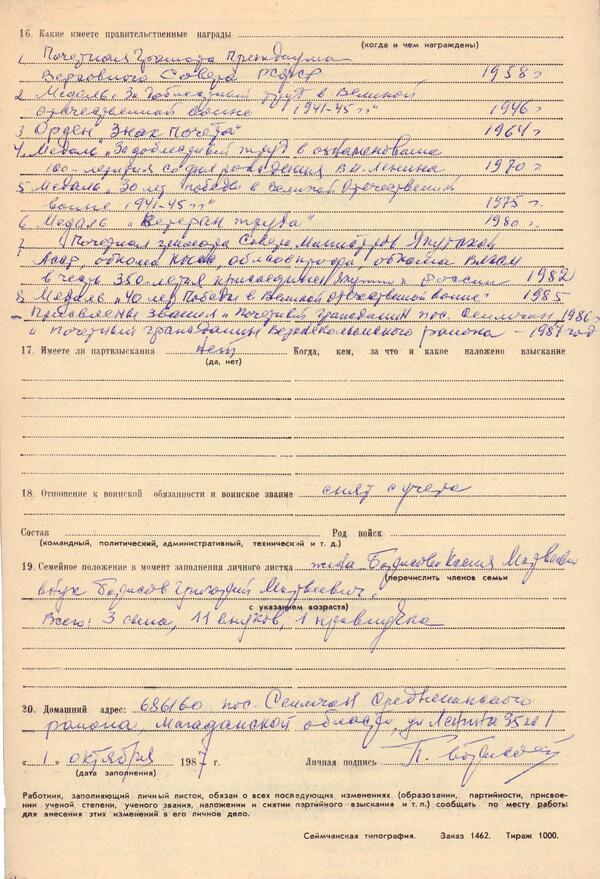 16. Какие имеете правительственные награды
(когда и чем награждены)
1 Почетная грамота Президиума
Верховного Совета РСФСР 1958 г
2 Медаль За доблестный труд в Великой
отечественной войне 1941-45 гг" 1946 г
3 Орден "Знак Почета" 1964 г
4. Медаль "За доблестный труд в ознаменование
100-летия со дня рождения В.И. Ленина 1970 г
5 Медаль "30 лет победы в Великой Отечественной
войне 1941-45 гг" 1975 г
6 Медаль "Ветеран труда" 1980 г
7 Почетная грамота Совета Министров Якутской
АССР, обкома КПСС, облсовпрофа, обкома ВЛКСМ
в честь 350-летия присоединения Якутии к России 1982
8 Медаль "40 лет Победы в Великой Отечественной войне" 1985
- Присвоены звания "Почетный гражданин пос. Сеймчан 1986 г
и почетный гражданин Верхнеколымского района - 1987 год
17. Имеете ли партвзыскания нет Когда, кем, за что и какое наложено взыскание
(да, нет)
18. Отношение к воинской обязанности и воинское звание снят с учета
Состав Род войск
(командный, политический, административный, технический и т. д.)
19. Семейное положение в момент заполнения личного листка жена Борисова Ксения Матвеевна
(перечислить членов семьи
внук Борисов Григорий Матвеевич.
с указанием возраста)
Всего: 3 сына, 11 внуков, 1 правнучка
20. Домашний адрес: 686160 пос. Сеймчан Среднеканского
района, Магаданской области, ул Ленина 35 кв 1
« 1 » октября 1987 г. Личная подпись П. Борисов
(дата заполнения)
Работник, заполняющий личный листок, обязан о всех последующих изменениях (образовании, партийности, присвое-
нии ученой степени, ученого звания, наложении и снятии партийного взыскания и т. п.) сообщать по месту работы:
для внесения этих изменений в его личное дело.
Сеймчанская типография. Заказ 1462. Тираж 1000.